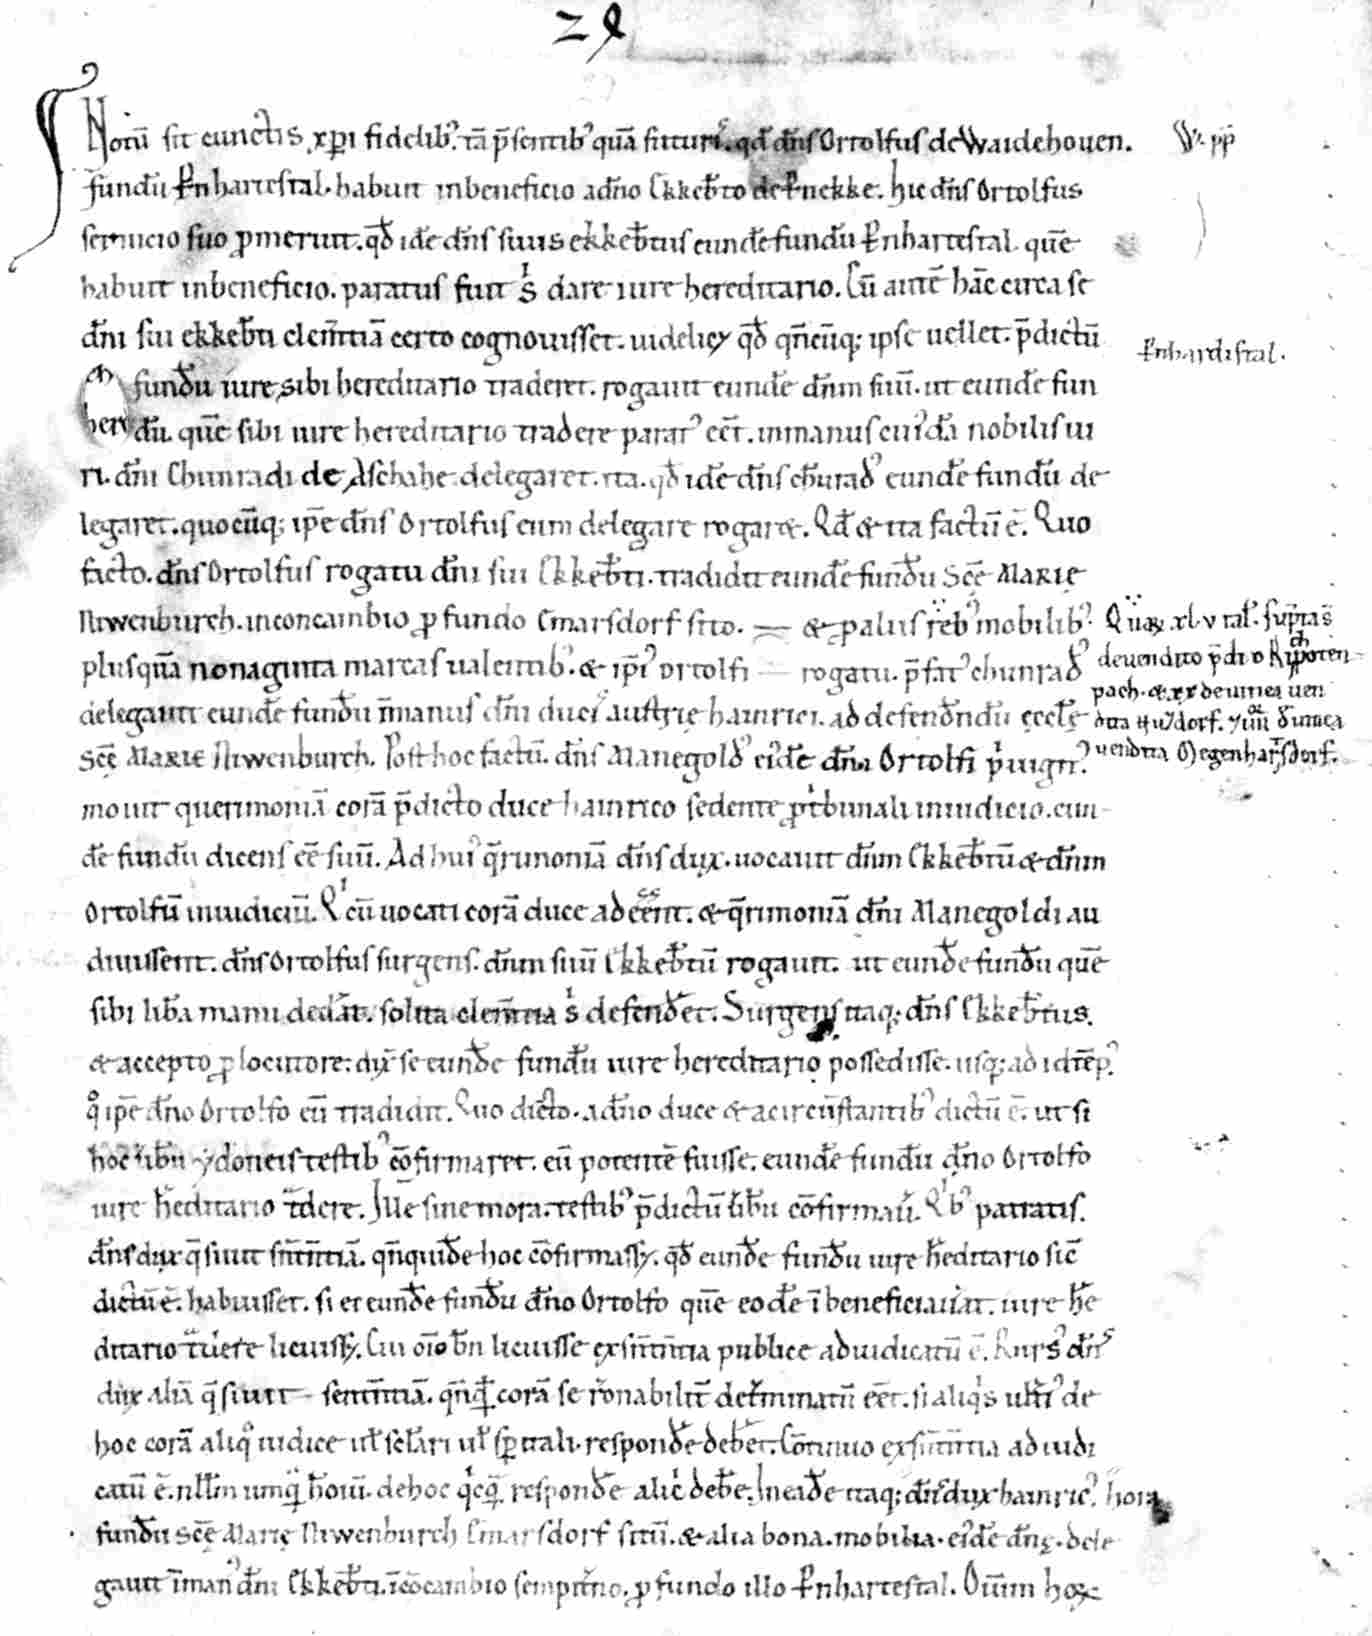 28
Notū sit cunctis xp̄i fidelib'. tā p̄sentib' quā futuris. qd̄ dn̄s Ortolfus de Waidehouen.
W. pp̄
fundū Ernhartestal. habuit in beneficio a dn̄o Ekkeb̄to de Pnekke. hic dn̄s Ortolfus
seruicio suo p̱meruit. qd̄ idē dn̄s suus ekkeb̄tus eundē fundū Ernhartestal. quē
habuit in beneficio. paratus fuit sⁱ dare iure hereditario. Cū autē hāc circa se
dn̄i sui ekkeb̄ti clem̄tiā certo cognouisset. uidelicȝ qd̄ qn̄cūq; ipse uellet. p̄dictū
Ernhardistal.
fundū iure sibi hereditario traderet. rogauit eundē dn̄m suū. ut eundē fun
dū. quē sibi iure hereditario tradere parat' eēt. in manus cui'dā nobilis ui
ri. dn̄i Chunradi de Aschahe. delegaret. ita. qd̄ idē dn̄s chūrad' eundē fundū de
legaret. quocūq; ip̄e dn̄s Ortolfus eum delegare rogaret. Qd̄ & ita factū ē. Quo
facto. dn̄s Ortolfus rogatu dn̄i sui Ekkeb̄ti. tradidit eundē fundū Scē Marię
Niwenburch. in concambio p̱ fundo Emarsdorf sito. & p̱ alus reb' mobilib'.
plusquā nonaginta marcas ualentib'. & ip̄i' ortolfi rogatu. p̄fat' chunrad'
delegauit eundē fundū in manus dn̄i duci' austrię hainrici. ad defendendū ęcclę
scē Marie Niwenburch. Post hoc factū. dn̄s Manegold' ei'dē dn̄i Ortolfi p̱uign'.
mouit querimoniā corā p̄dicto duce hainrico sedente p̱ tribunali in iudicio. eun
dē fundū dicens eē suū. Ad hui' q̄rimoniā dn̄s dux. uocauit dn̄m Ekkeb̄tū & dn̄m
Ortolfū in iudiciū. Qⁱ cū uocati corā duce adeēnt. & q̄rimoniā dn̄i Manegoldi au
diuissent. dn̄s Ortolfus surgens. dn̄m suū Ekkeb̄tū rogauit. ut eundē fundū quē
sibi lib̄a manu dedāt. solita clem̄tia sⁱ defendet. Surgens itaq; dn̄s Ekkeb̄tus.
& accepto p̱locutore. dix̄ se eundē fundū iure hereditario possedisse. usq; ad id tēp'.
qº ip̄e dn̄o Ortolfo eū tradidit. Quo dicto. a dn̄o duce & a circūstantib' dictū ē. ut si
hoc ubū ydoneis testib' cōfirmaret. eū potentē fuisse. eundē fundū dn̄o Ortolfo
iure h̄editario t̄dere. Ille sine mora. testib' p̄dictū ubū cōfirmauⁱ. Qⁱb' patratis.
dn̄s dux q̄siuit sn̄tn̄tiā. qn̄quidē hoc cōfirmassȝ. qd̄ eundē fundū iure h̄editario sic̄
dictū ē. habuisset. si ei eundē fundū dn̄o Ortolfo quē eodē ī beneficiauāt. iure h̄e
ditario t̄dere licuissȝ. Cui oīo bn̄ licuisse ex sn̄tn̄tia publice adiudicatū ē. Rurs' dn̄s
dux aliā q̄siuit sentn̄tiā. corā se rōnabilit̄ det̄minatū eēt. si aliqⁱs ult̄i' de
hoc corā aliqº iudice ul' scl̄ari ul' sp̄itali. respondē debet. Cōtinuo ex sn̄tn̄tia adiudi
catū ē. nll̄m umq̄ hoīū. de hoc respondē alicⁱ debē. In eadē itaq; dn̄s dux hainric'. hora
fundū scę Marię Niwenburch Emarsdorf sitū. & alia bona. mobilia. ei'dē dn̄ę. dele
gauit ī man' dn̄i Ekkeb̄ti. ī cōcambio sempit̄no. p̱ fundo illo Ernhartestal. Oīum hoꝝ
Quaꝝ. xl. v tal̄. sup̄tas
deuendito p̄dio
pach. & xx de uinea uen
dita de uinea
uendita Megenharsdorf.